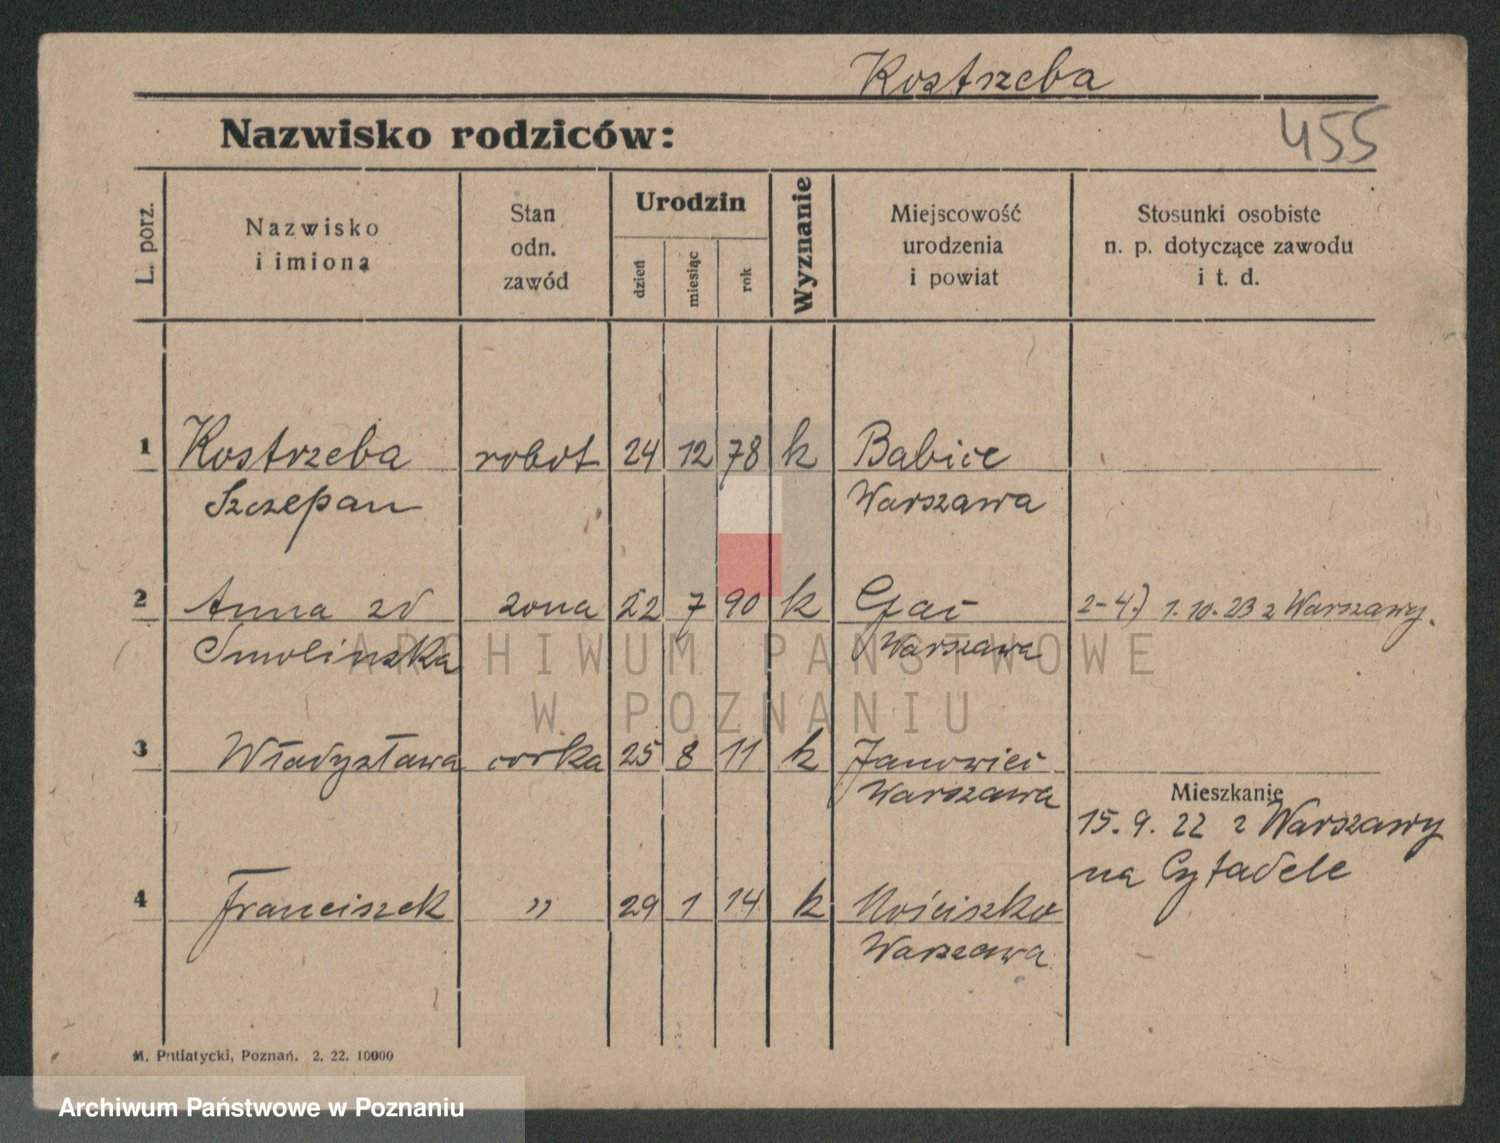 Kostrzeba
Nazwisko rodziców:
455
L. porz.
Nazwisko
i imiona
Stan
odn.
zawód
Urodzin
dzień
miesiąc
rok
Wyznanie
Miejscowość
urodzenia
i powiat
Stosunki osobiste
n. p. dotyczące zawodu
i t. d.
1 Kostrzeba robot 24 12 78 k Babice
Szczepan Warszawa
2 Anna zd żona 22 7 90 k 2-4) 1.10.23 z Warszawy.
Smolinska Warszawa
3 Władysława corka 25 8 11 k Janowiec
Warszawa
Mieszkanie
15.9.22 z Warszawy
na Cytadele
4 Franciszek " 29 1 14 k Mościszko
Warszawa
M. Putiatycki, Poznań. 2. 22. 10000
ARCHIWUM PAŃSTWOWE
W POZNANIU
Archiwum Państwowe w Poznaniu